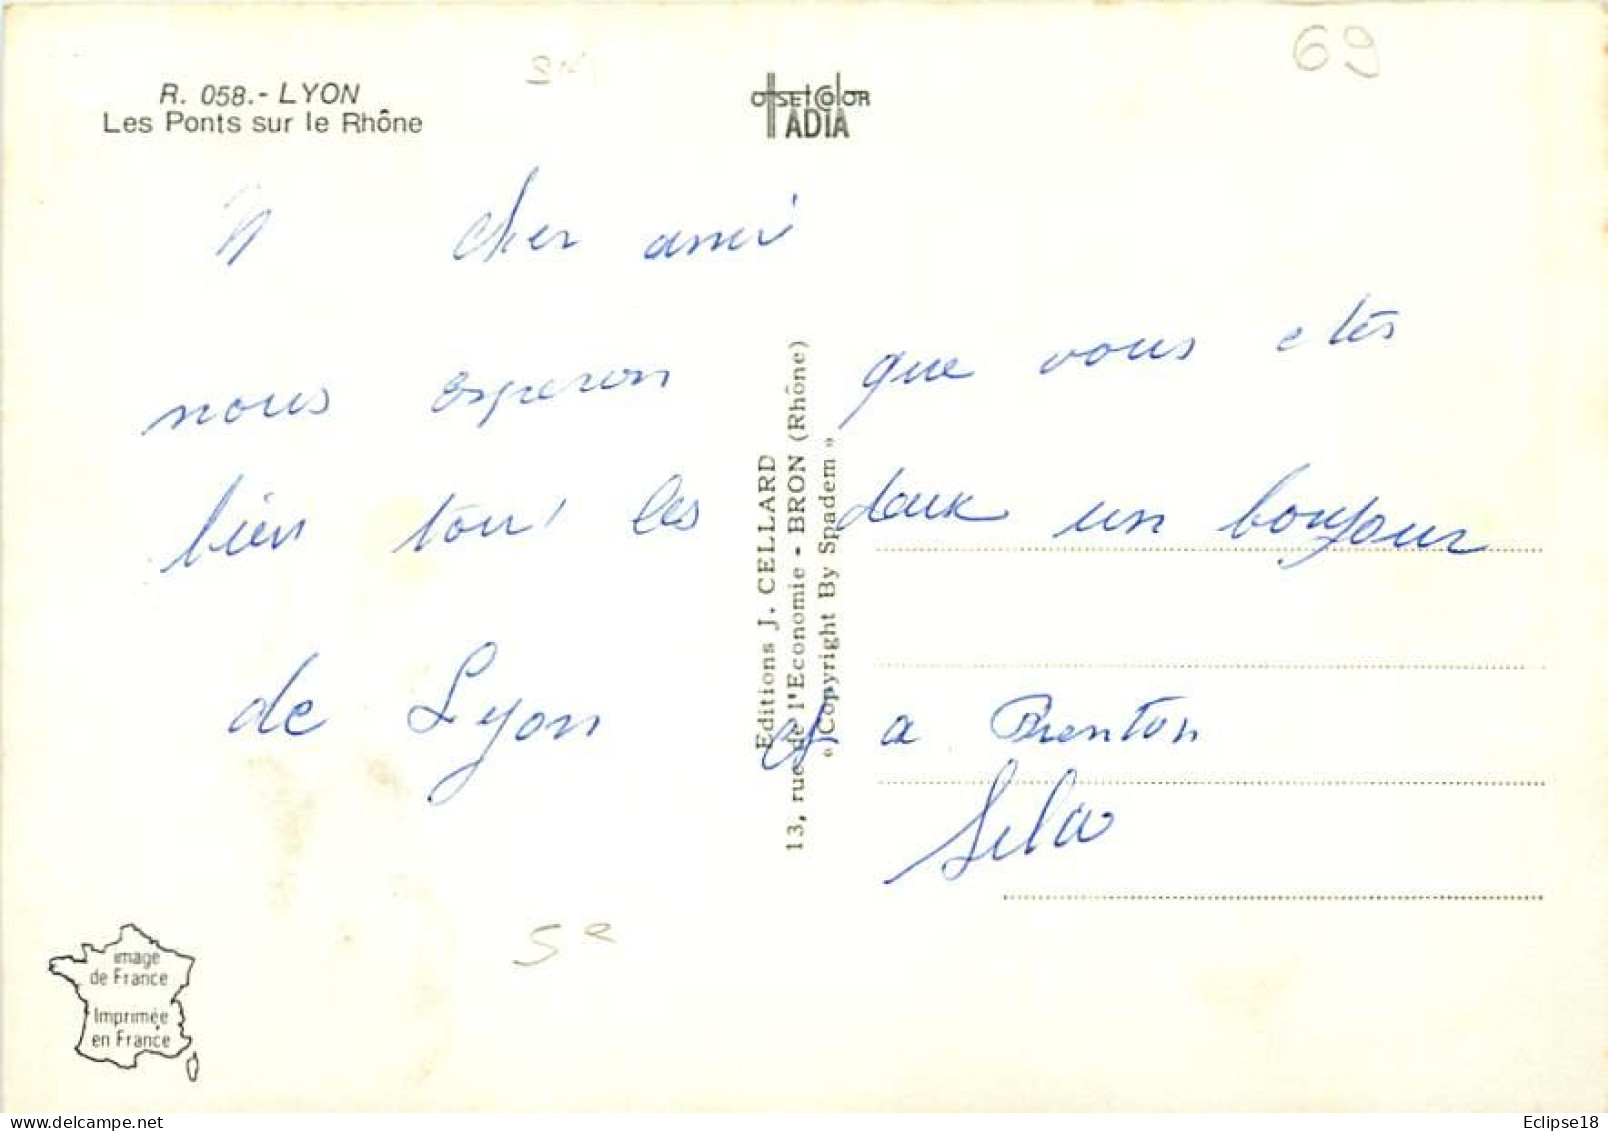 R. 058.- LYON
Les Ponts sur le Rhône
offsetColor
ADIA
69
cher ami
nous esperon que vous etes
bien tous les deux un bonjour
de Lyon et a Brenton
Editions J. CELLARD
13, rue de l'Economie - BRON (Rhône)
« Copyright By Spadem »
image
de France
Imprimée
en France
Eclipse18